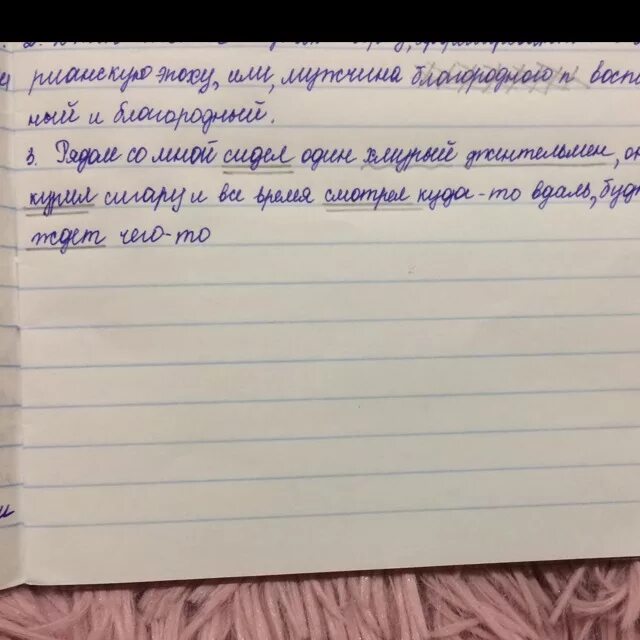 рианскую эпоху, или, мужчина благородного п воспи
ный и благородный.
3. Рядом со мной сидел один хмурый джентельмен, он
курил сигару и все время смотрел куда-то вдаль, буд
ждет чего-то